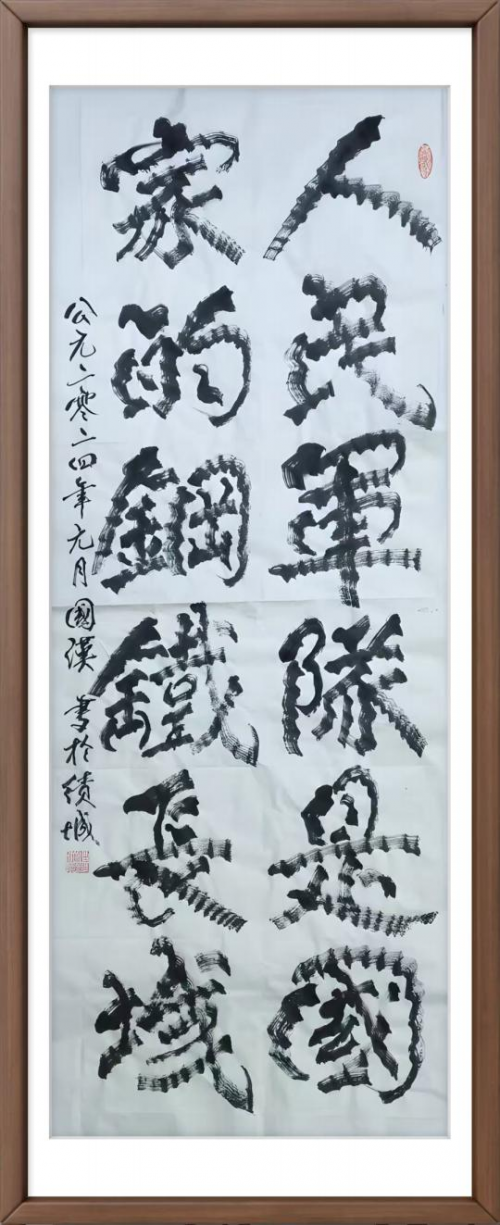 人民軍隊是國
家的鋼鐵長城
公元二零二四年元月國漢書於績城